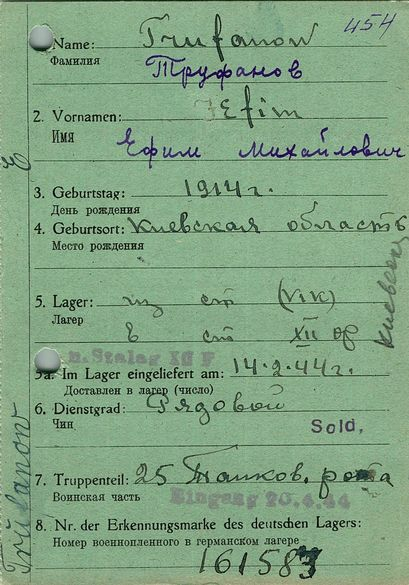 454
Name: Trufanow
Фамилия
Труфанов
2. Vornamen: Jefim
Имя
Ефим Михайлович
3. Geburtstag: 1914 г.
День рождения
4. Geburtsort: Киевская область
Место рождения
5. Lager: из ст (VIK)
Лагерь
в ст XII ОР
5a. Im Lager eingeliefert am: 14.2.44 г.
Доставлен в лагерь (число)
6. Dienstgrad: Рядовой
Чин
Sold.
7. Truppenteil: 25 Танков. рота
Воинская часть
Eingang 20.4.44
8. Nr. der Erkennungsmarke des deutschen Lagers:
Номер военнопленного в германском лагере
161583
Trufanow